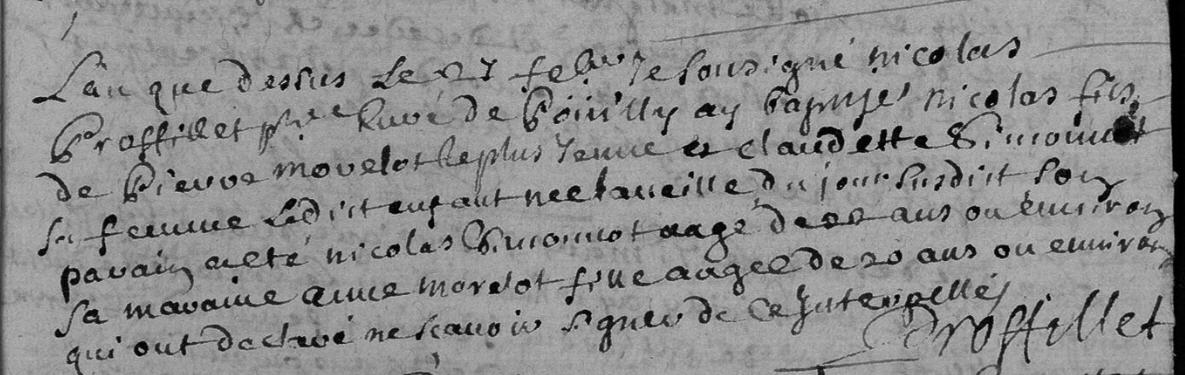 L'an que dessus le 27 febvr Je soussigné nicolas
Proffillet pbre Curé de Pouilly ay baptisé nicolas fils
de Pierre morelot le plus Jeune et claudette Simonnot
sa femme Ledict enfant né la veille du jour susdict son
parain a esté nicolas Simonnot aagé de ans ou environ
sa maraine anne morelot fille aagée de 20 ans ou environ
qui ont declaré ne scavoir signer de ce Interpellés
Proffillet